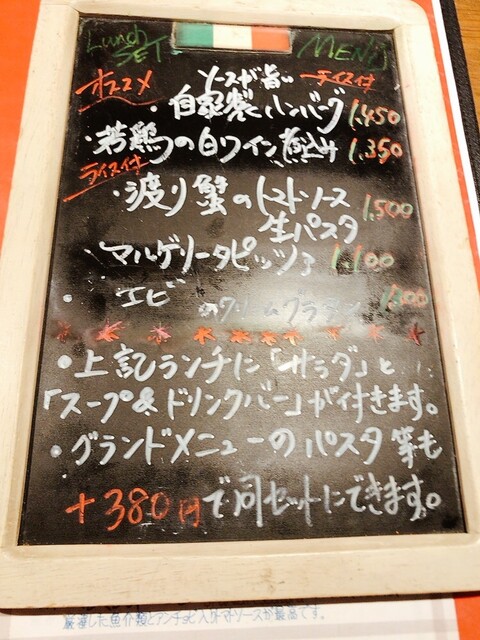 Lunch SET MENU
オススメ ソースが旨い ライス付
・自家製ハンバーグ 1,450
・若鶏の白ワイン煮込み 1,350
ライス付
・渡り蟹のトマトソース
生パスタ 1,500
・マルゲリータピッツァ 1,100
・エビ のクリームグラタン
・上記ランチに「サラダ」と
「スープ&ドリンクバー」が付きます。
・グランドメニューのパスタ等も
+380円で同セットにできます。
厳選した魚介類とアンチョビ入りトマトソースが最高です。